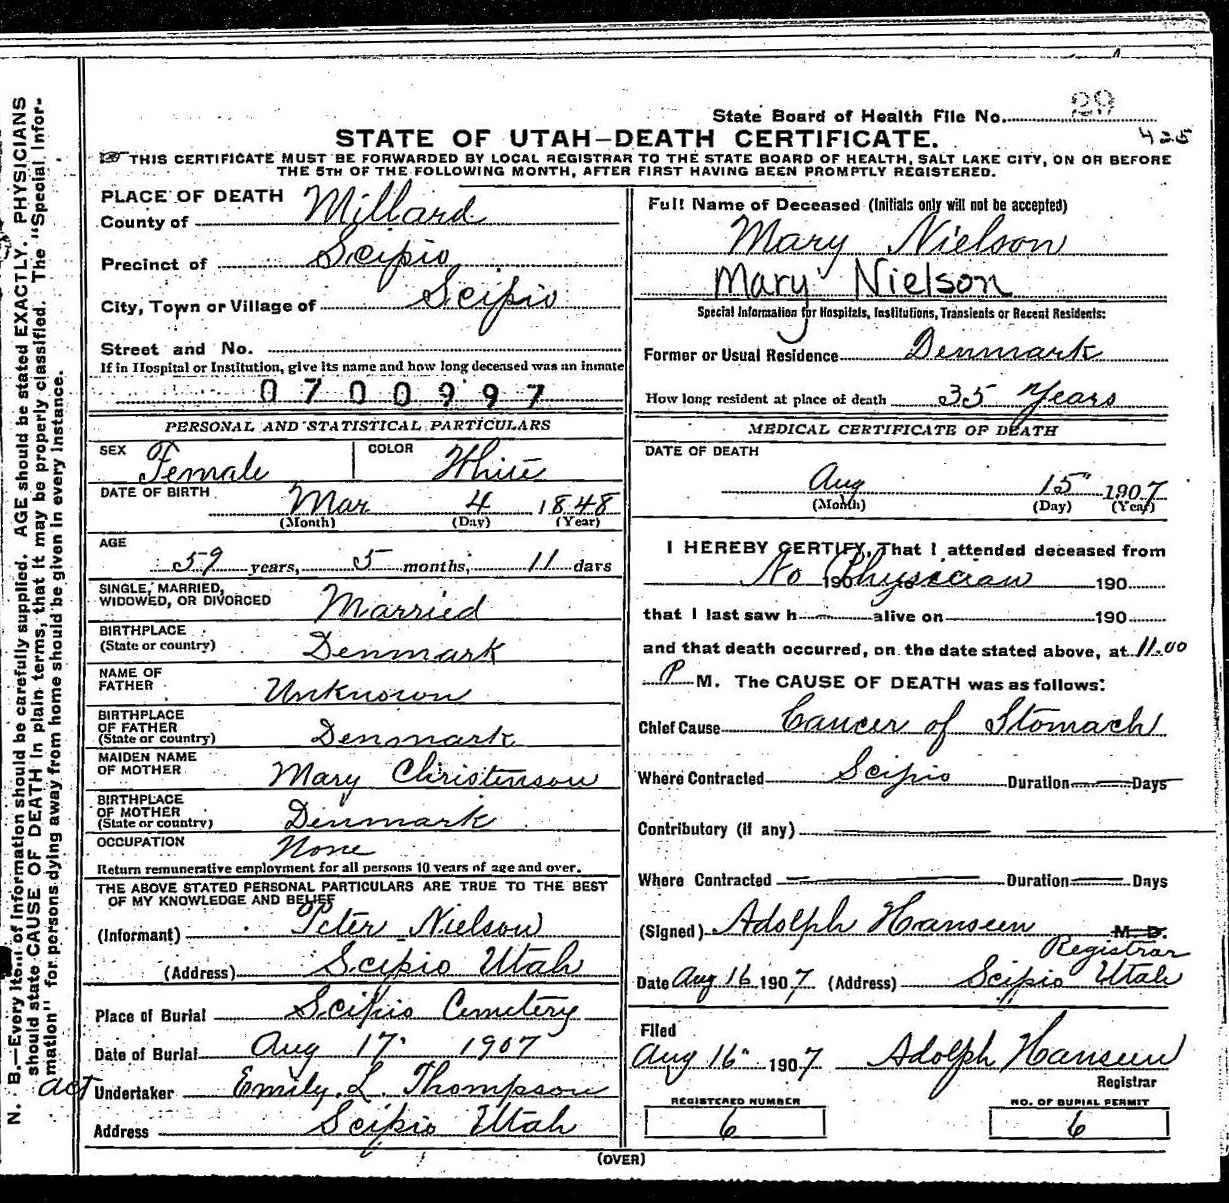 State Board of Health File No. 29
425
STATE OF UTAH—DEATH CERTIFICATE.
THIS CERTIFICATE MUST BE FORWARDED BY LOCAL REGISTRAR TO THE STATE BOARD OF HEALTH, SALT LAKE CITY, ON OR BEFORE
THE 5TH OF THE FOLLOWING MONTH, AFTER FIRST HAVING BEEN PROMPTLY REGISTERED.
PLACE OF DEATH
County of Millard
Precinct of Scipio
City, Town or Village of Scipio
Street and No.
If in Hospital or Institution, give its name and how long deceased was an inmate
0700997
PERSONAL AND STATISTICAL PARTICULARS
SEX Female COLOR White
DATE OF BIRTH Mar 4 1848
(Month) (Day) (Year)
AGE
59 years, 5 months, 11 days
SINGLE, MARRIED,
WIDOWED, OR DIVORCED Married
BIRTHPLACE
(State or country) Denmark
NAME OF
FATHER Unknown
BIRTHPLACE
OF FATHER
(State or country) Denmark
MAIDEN NAME
OF MOTHER Mary Christenson
BIRTHPLACE
OF MOTHER
(State or country) Denmark
OCCUPATION None
Return remunerative employment for all persons 10 years of age and over.
THE ABOVE STATED PERSONAL PARTICULARS ARE TRUE TO THE BEST
OF MY KNOWLEDGE AND BELIEF
(Informant) Peter Nielson
(Address) Scipio Utah
Place of Burial Scipio Cemetery
Date of Burial Aug 17 1907
act Undertaker Emily L. Thompson
Address Scipio Utah
Full Name of Deceased (Initials only will not be accepted)
Mary Nielson
Mary Nielson
Special Information for Hospitals, Institutions, Transients or Recent Residents:
Former or Usual Residence Denmark
How long resident at place of death 35 Years
MEDICAL CERTIFICATE OF DEATH
DATE OF DEATH
Aug 15" 1907
(Month) (Day) (Year)
I HEREBY CERTIFY, That I attended deceased from
No Physician 190 190
that I last saw h alive on 190
and that death occurred, on the date stated above, at 11.00
P M. The CAUSE OF DEATH was as follows:
Chief Cause Cancer of Stomach
Where Contracted Scipio Duration Days
Contributory (if any)
Where Contracted Duration Days
(Signed) Adolph Hansen M. D.
Registrar
Date Aug 16 1907 (Address) Scipio Utah
Filed
Aug 16" 1907 Adolph Hansen
Registrar
REGISTERED NUMBER
6
NO. OF BURIAL PERMIT
6
(OVER)
N. B.—Every item of information should be carefully supplied. AGE should be stated EXACTLY. PHYSICIANS
should state CAUSE OF DEATH in plain terms, that it may be properly classified. The "Special Infor-
mation" for persons dying away from home should be given in every instance.